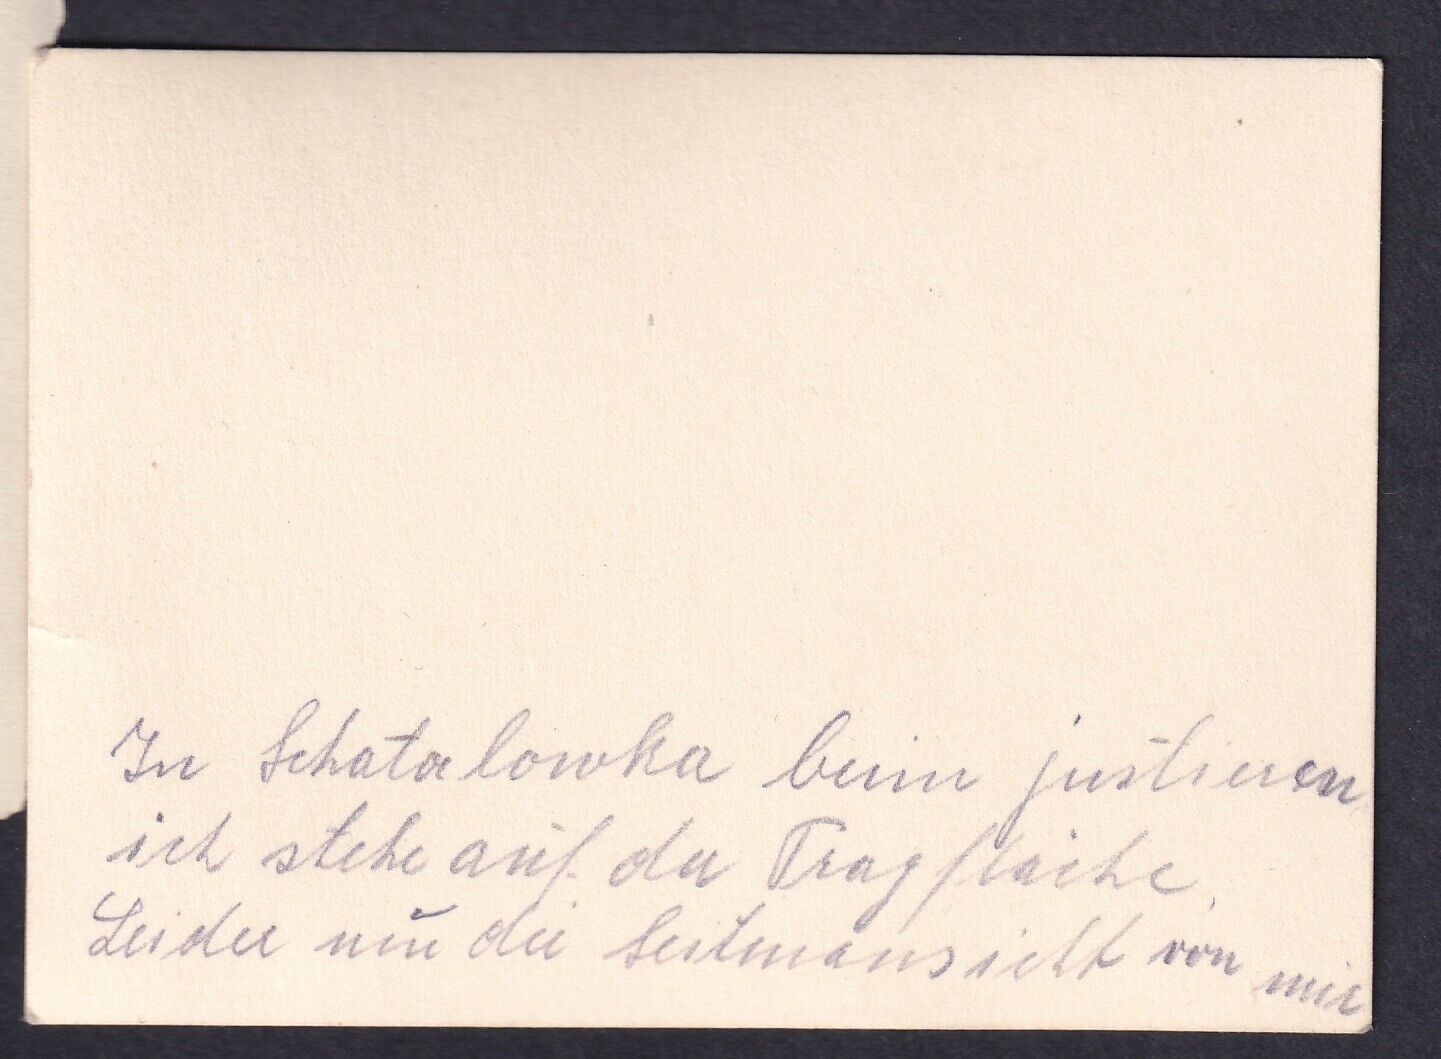 In Schatalowka beim justieren
ich stehe auf der Tragfläche.
Leider nur die Seitenansicht von mir